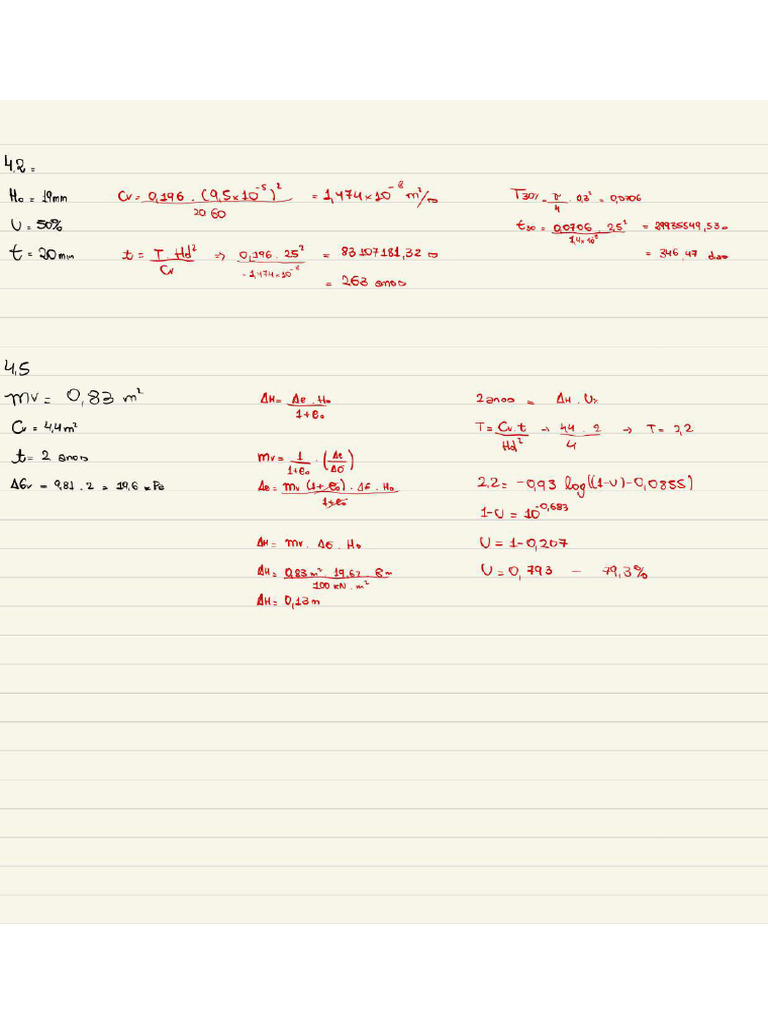 4.2 =
H₀ = 19mm
U = 50%
t = 20 min
Cv = 0,196 . (9,5×10⁻⁵)² / 20 60 = 1,474×10⁻⁸ m²/s
t = T . Hd² / Cv ⇒ 0,196 . 25² / 1,474×10⁻⁸ = 83107181,32 s
= 263 anos
T30% = π/4 . 0,3² = 0,0706
t₃₀ = 0,0706 . 25² / 1,4×10⁻⁸ = 29935549,53 s
= 346,47 dias
4,5
mv = 0,83 m²
Cv = 4,4m²
t = 2 anos
ΔGv = 9,81 . 2 = 19,6 KPa
ΔH = Δe . H₀ / 1+e₀
mv = 1 / 1+e₀ . (Δe / Δσ)
Δe = mv (1+e₀) . Δσ . H₀ / 1+e₀
ΔH = mv . Δσ . H₀
ΔH = 0,83 m² . 19,62 . 8m / 100 kN . m²
ΔH = 0,13m
2 anos = ΔH . U%
T = Cv . t / Hd² → 4,4 . 2 / 4 → T = 2,2
2,2 = -0,93 log((1-U)-0,0855)
1-U = 10^-0,683
U = 1-0,207
U = 0,793 — 79,3%